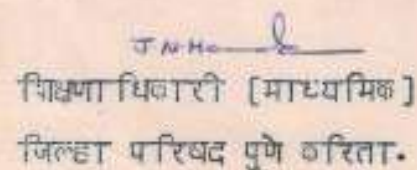 J N H
शिक्षणाधिकारी [माध्यमिक]
जिल्हा परिषद पुणे करिता.